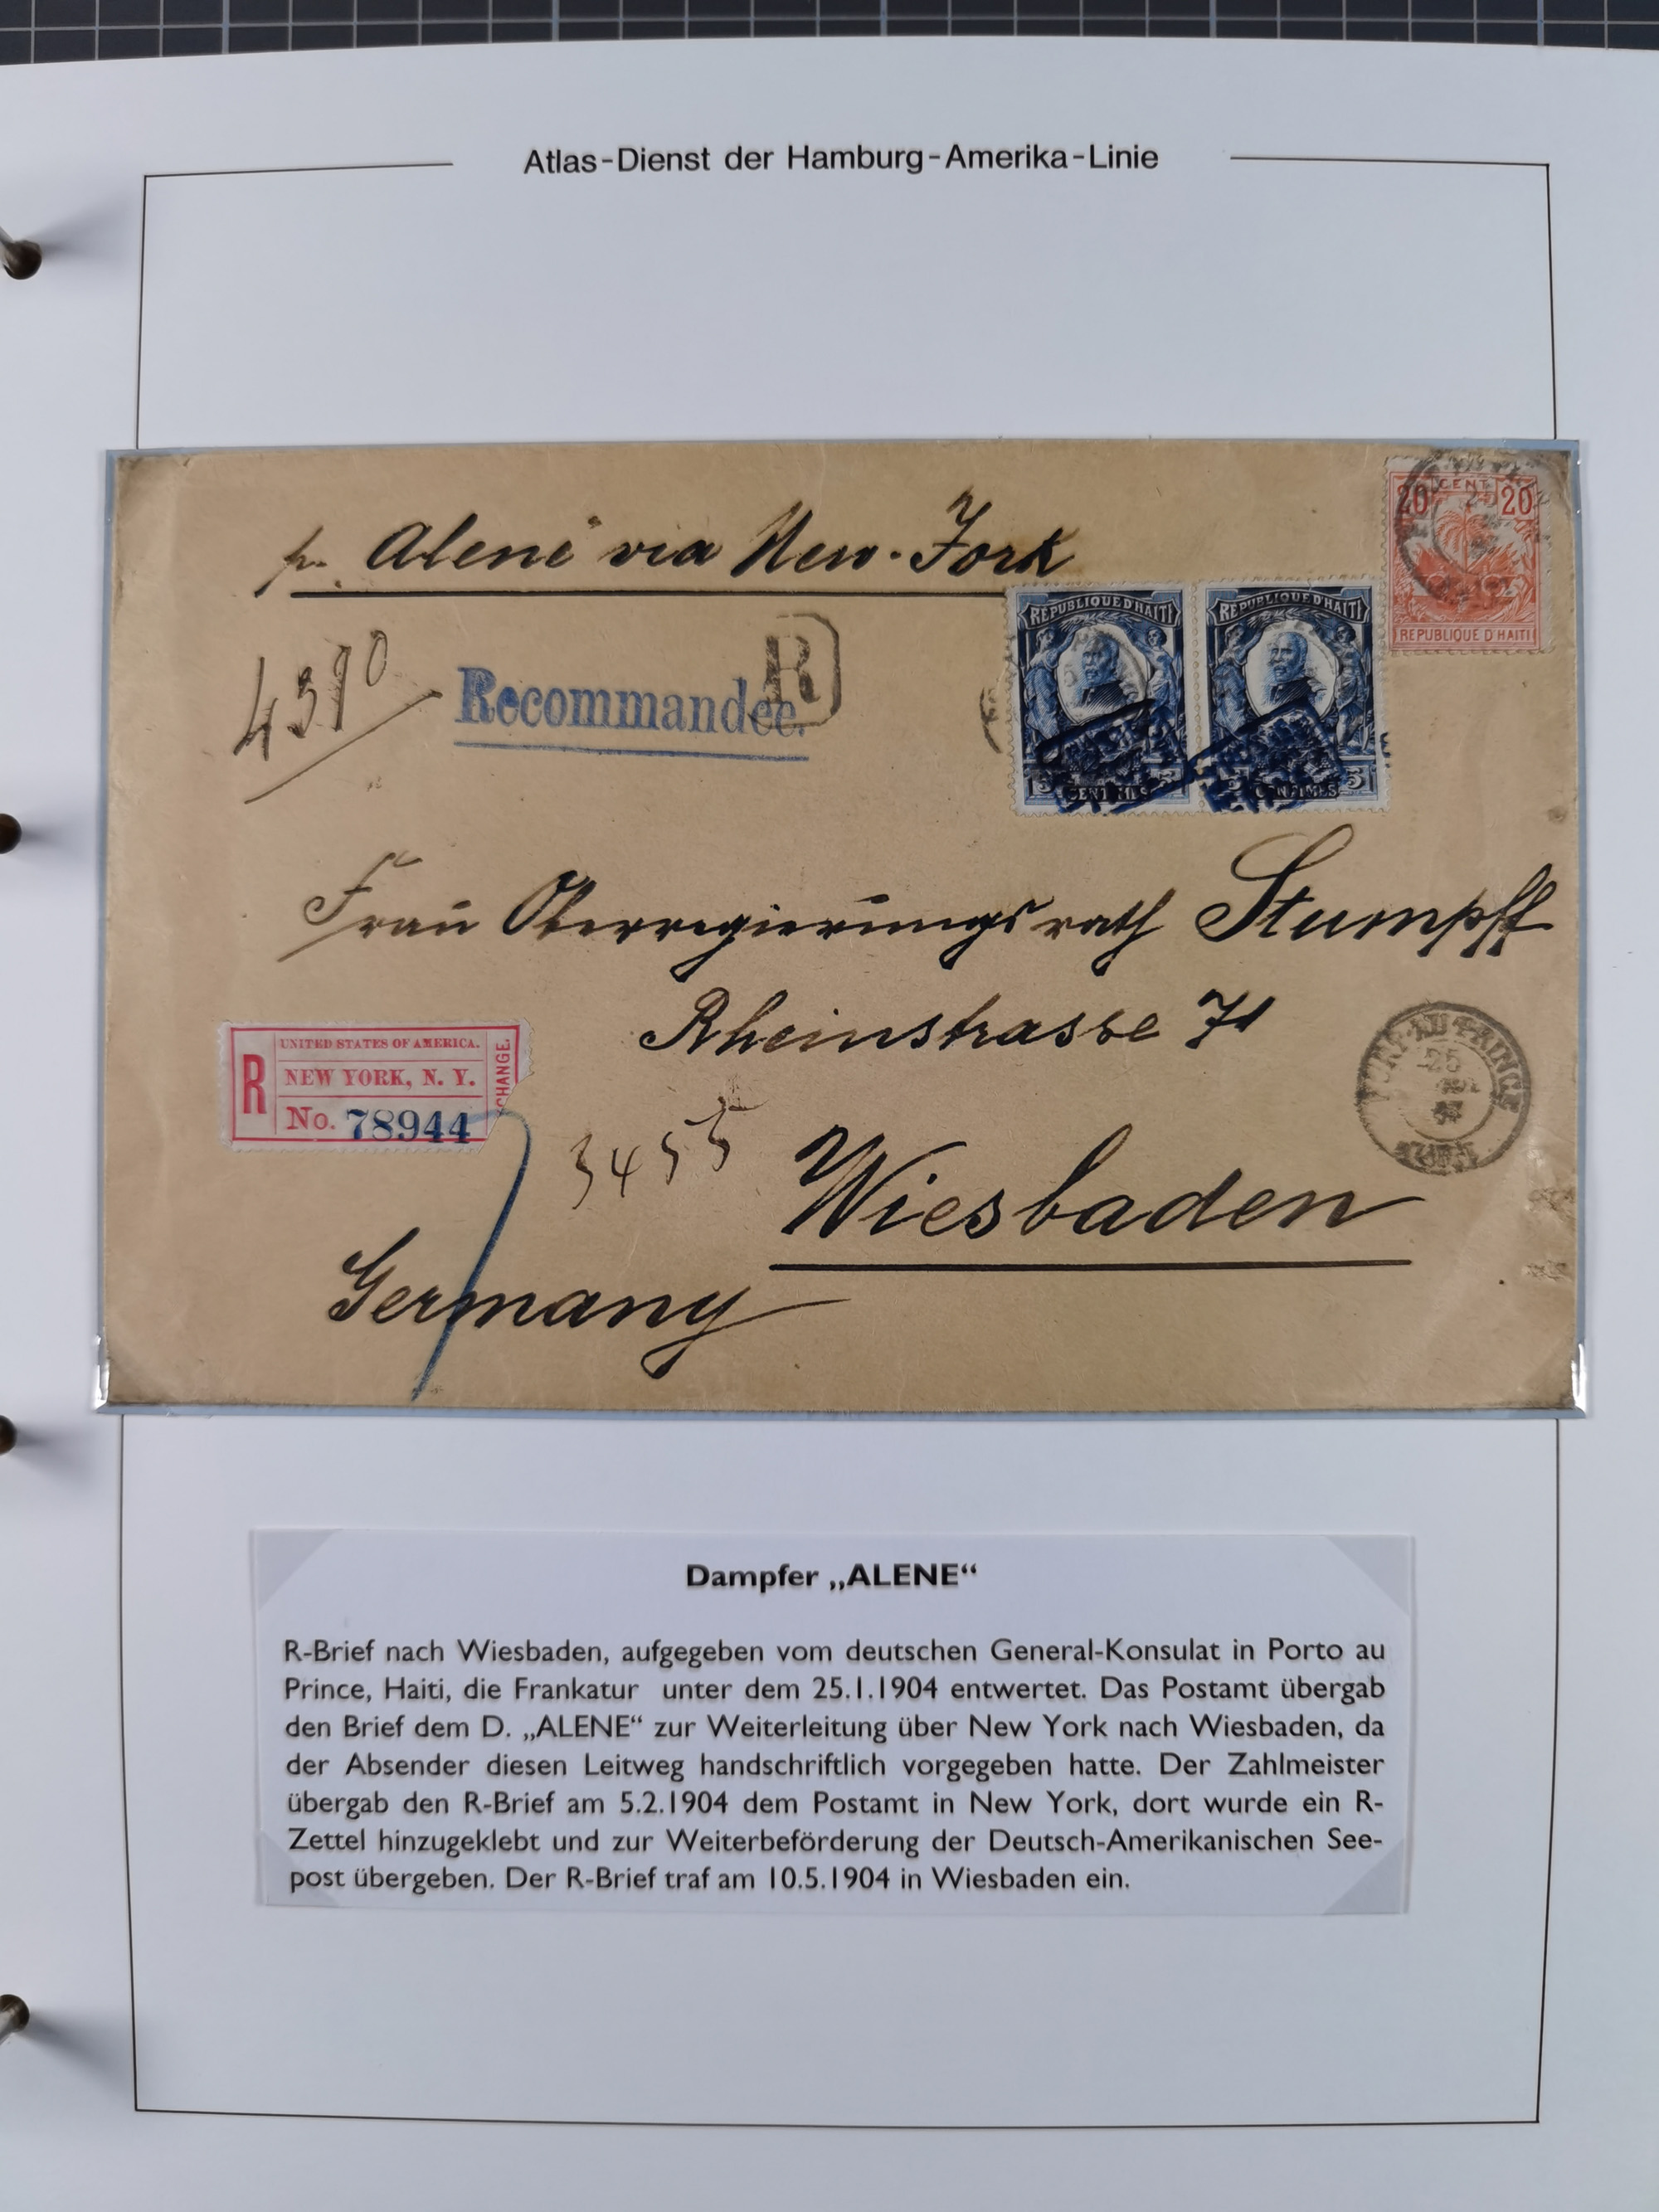 Atlas-Dienst der Hamburg-Amerika-Linie
20 CENT 20
REPUBLIQUE D'HAITI
p. Alene via New-York
REPUBLIQUE D'HAITI
REPUBLIQUE D'HAITI
5 CENTIMES 5
5 CENTIMES 5
4390
Recommandée.
R
Frau Oberregierungsrath Stumpff
Rheinstrasse 71
R
UNITED STATES OF AMERICA.
NEW YORK, N. Y.
No. 78944
CHANGE.
PORT-AU-PRINCE
25
HAITI
3455
Wiesbaden
Germany
Dampfer „ALENE“
R-Brief nach Wiesbaden, aufgegeben vom deutschen General-Konsulat in Porto au
Prince, Haiti, die Frankatur unter dem 25.1.1904 entwertet. Das Postamt übergab
den Brief dem D. „ALENE“ zur Weiterleitung über New York nach Wiesbaden, da
der Absender diesen Leitweg handschriftlich vorgegeben hatte. Der Zahlmeister
übergab den R-Brief am 5.2.1904 dem Postamt in New York, dort wurde ein R-
Zettel hinzugeklebt und zur Weiterbeförderung der Deutsch-Amerikanischen See-
post übergeben. Der R-Brief traf am 10.5.1904 in Wiesbaden ein.